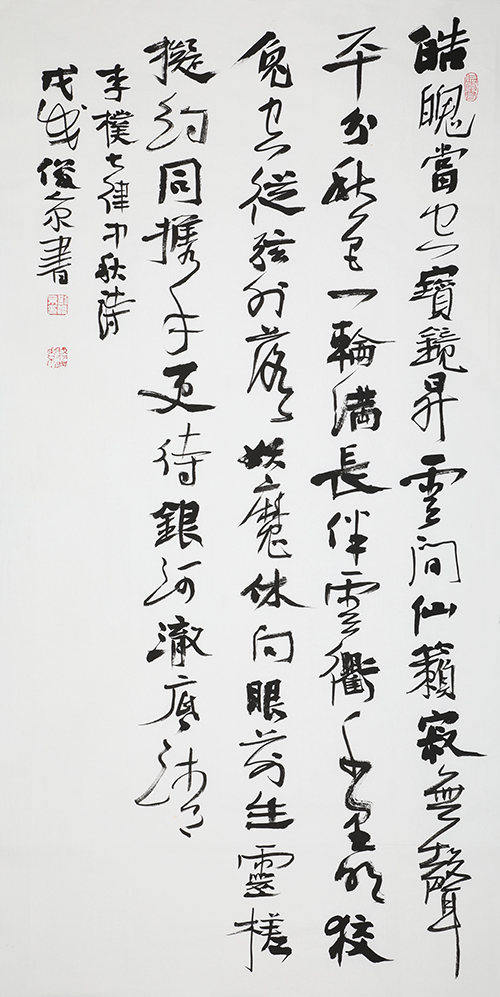 皓魄當空寶鏡昇雲間仙籟寂無聲
平分秋色一輪滿長伴雲衢千里明狡
兔空從弦外落妖魔休向眼前生靈槎
擬約同携手更待銀河澈底清
李樸七律中秋詩
戊戌俊京書